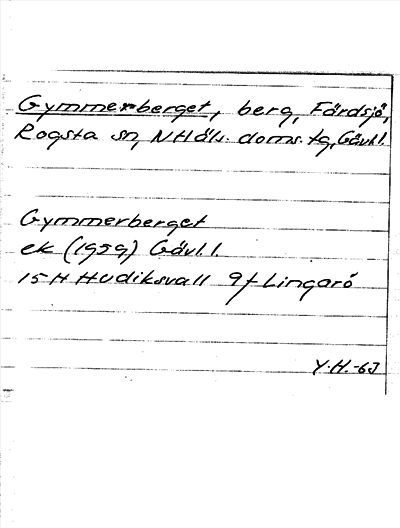 Gymmerberget, berg, Färdsjö,
Rogsta sn, NHäls. doms. tg, Gävl.l.
Gymmerberget
ek (1959) Gävl.l.
15H Hudiksvall 9f Lingarö
Y.H.-63